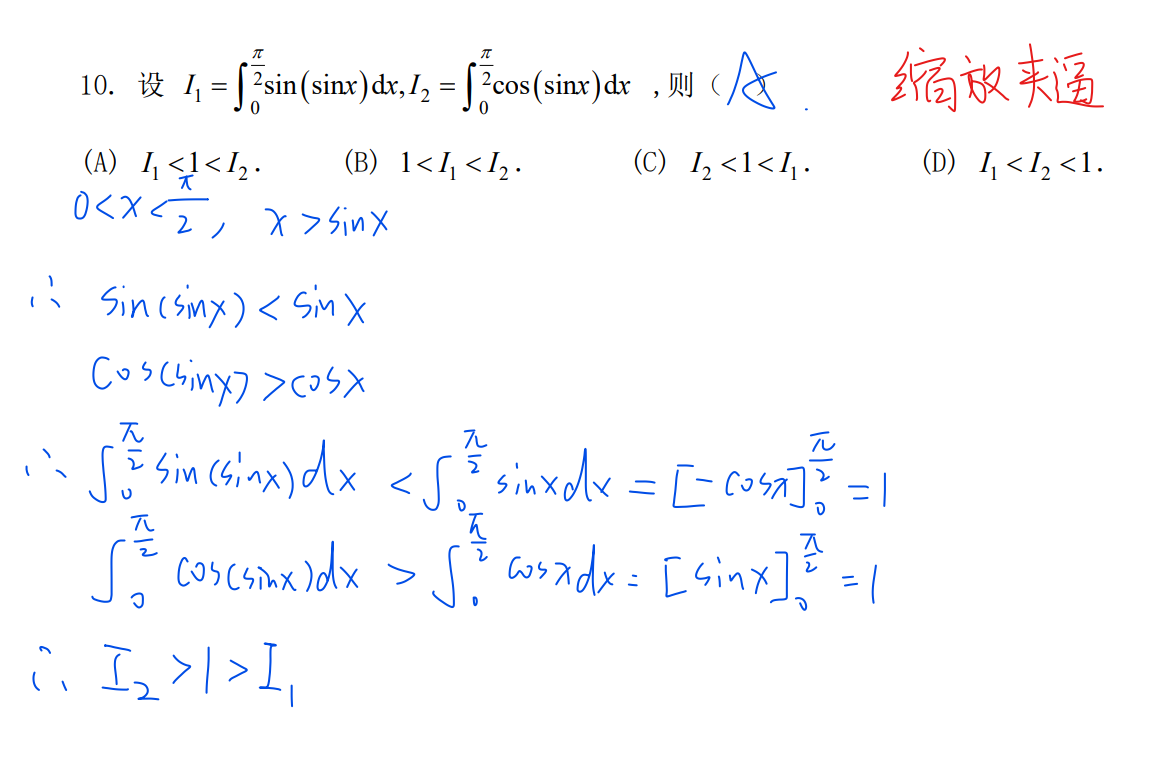 10. 设 I₁ = ∫₀^{π/2} sin(sinx)dx, I₂ = ∫₀^{π/2} cos(sinx)dx ,则( A .
缩放夹逼
(A) I₁<1<I₂. (B) 1<I₁<I₂. (C) I₂<1<I₁. (D) I₁<I₂<1.
0<x<π/2, x>sinx
∴ sin(sinx)<sinx
cos(sinx)>cosx
∴ ∫₀^{π/2} sin(sinx)dx < ∫₀^{π/2} sinxdx = [-cosx]₀^{π/2} = 1
∫₀^{π/2} cos(sinx)dx > ∫₀^{π/2} cosxdx = [sinx]₀^{π/2} = 1
∴ I₂>1>I₁